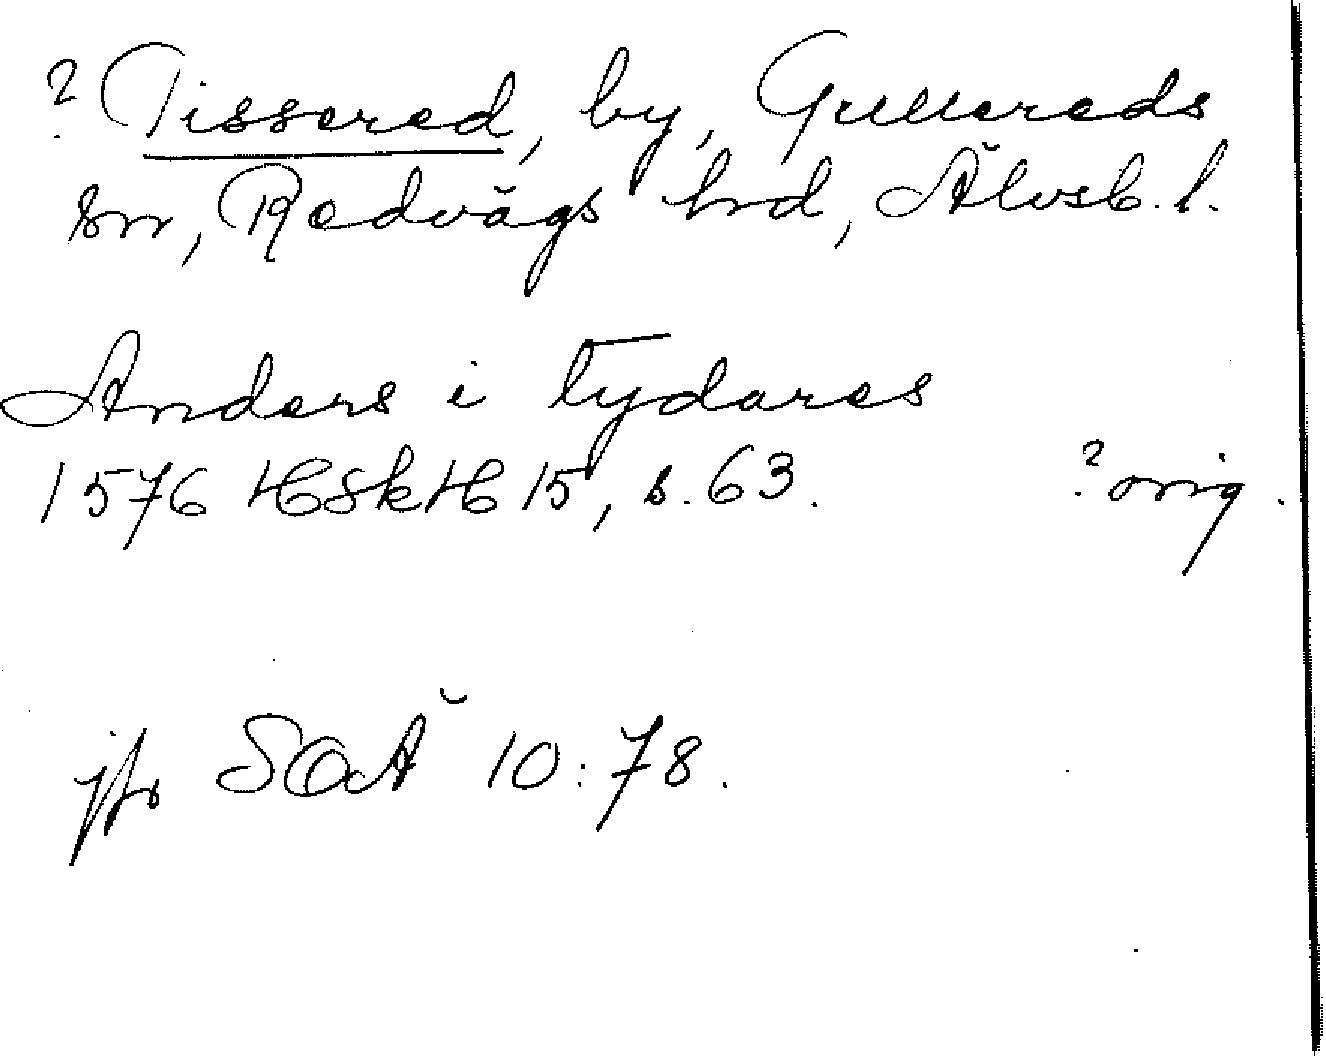 ? Tissered, by, Gullereds
sn, Redvägs hrd, Älvsb. l.
Anders i Tydares
1576 HSkH 15, s. 63. ? orig.
jfr SOÄ 10:78.